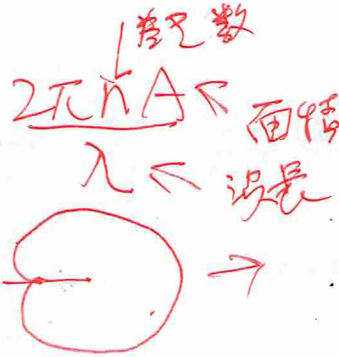 巻き数
2πnA 面積
λ 波長